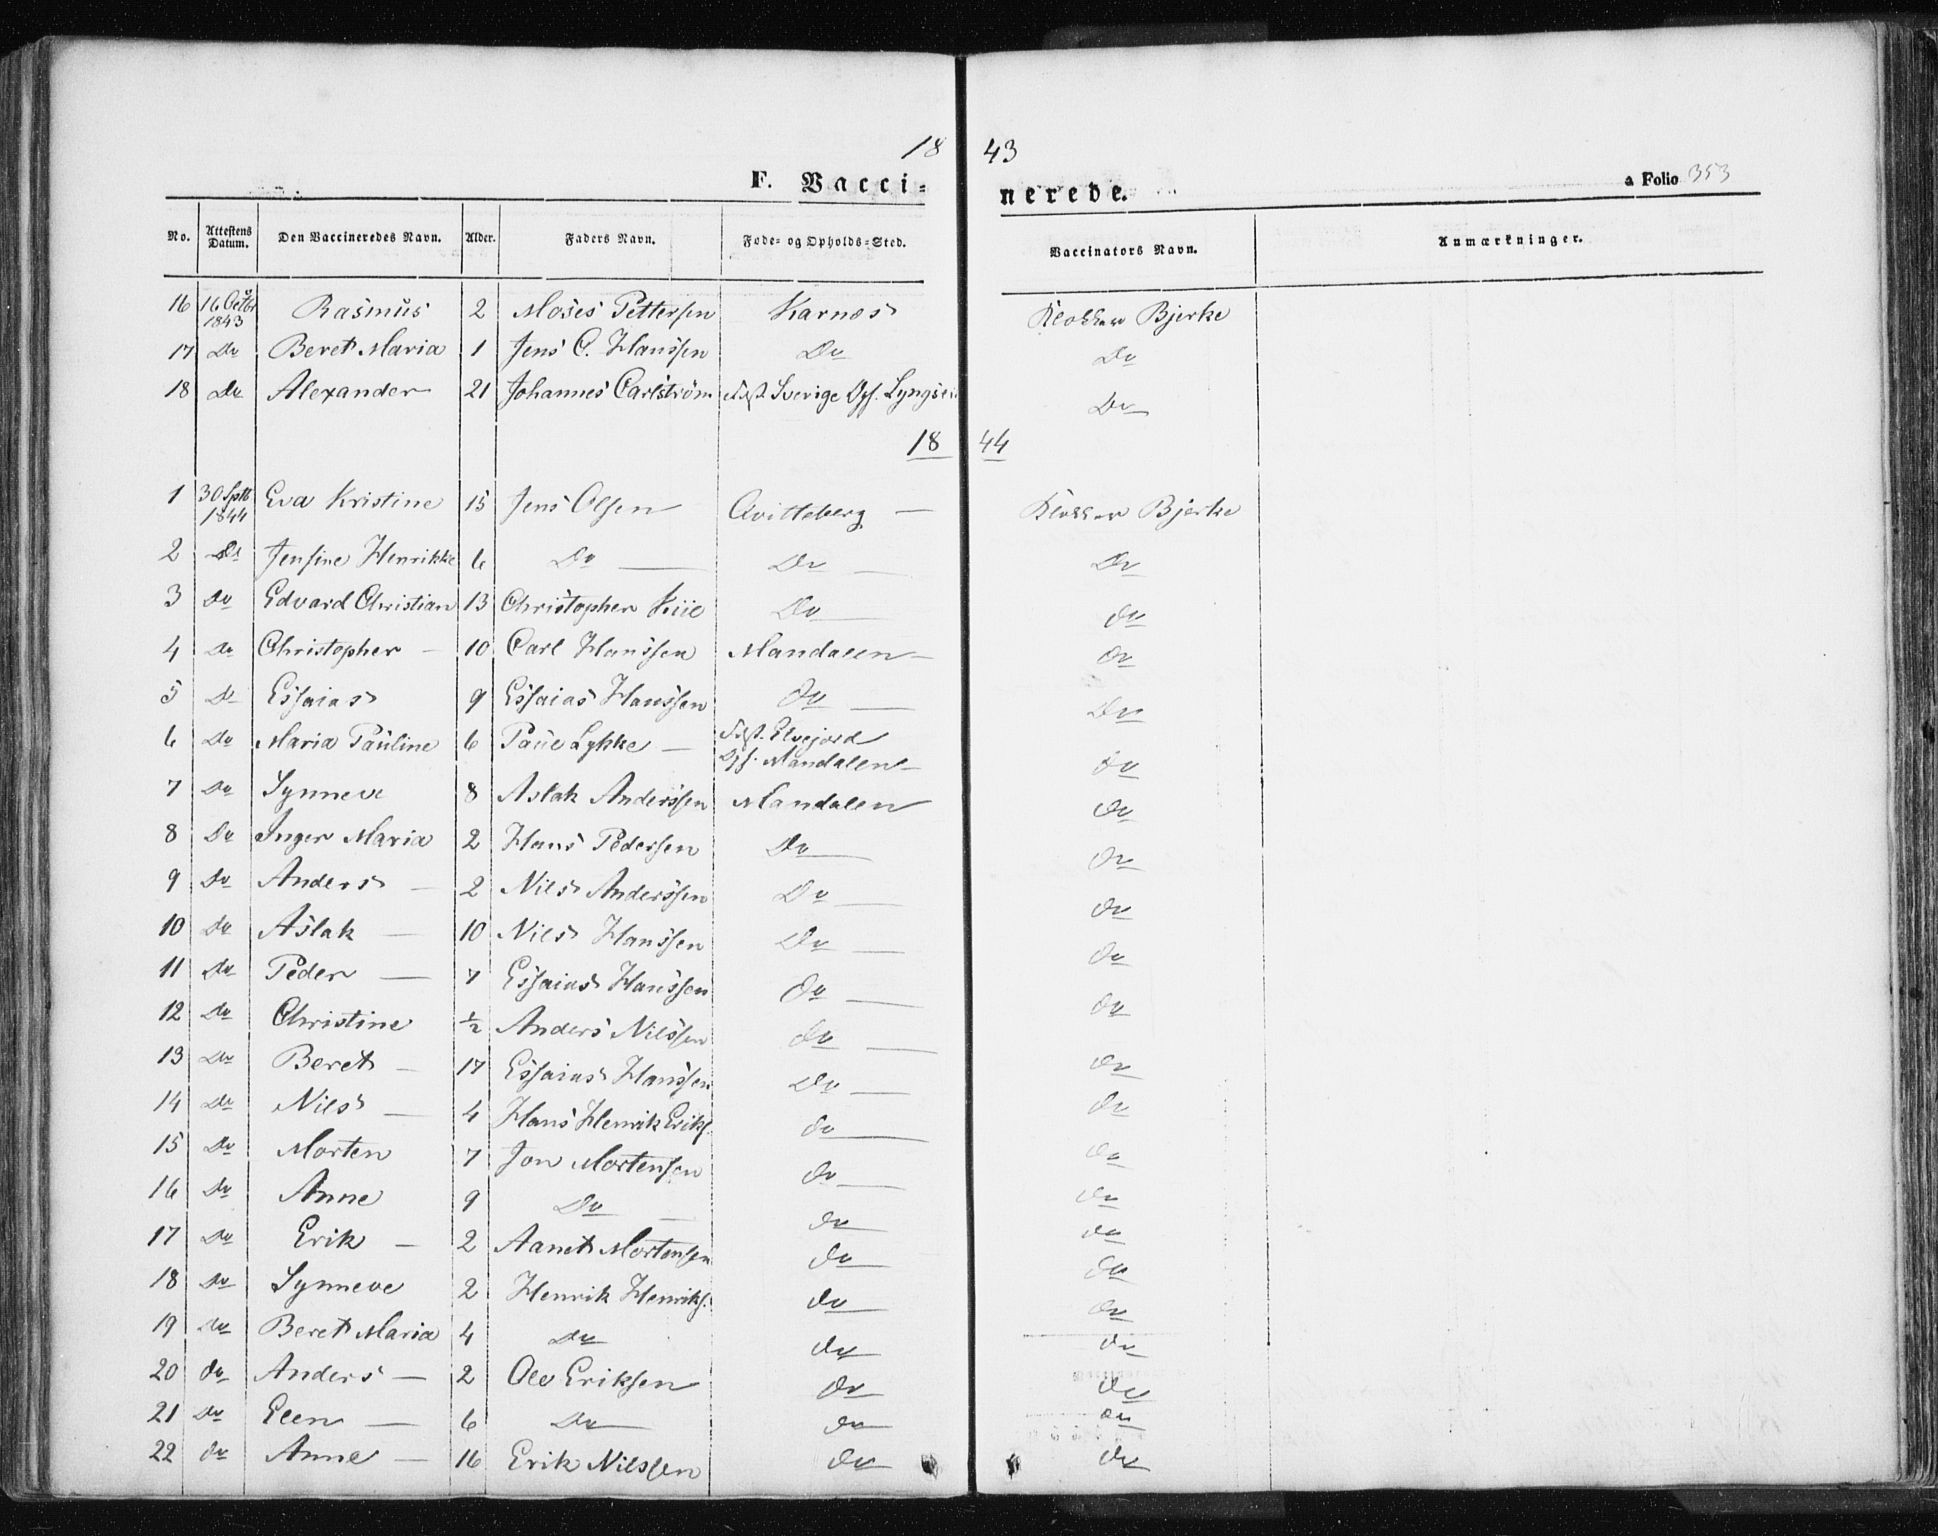 18 43
F. Vacci- nerede. a Folio 353
No. Attestens Datum. Den Vaccineredes Navn. Alder. Faders Navn. Føde- og Opholds-Sted. Vaccinators Navn. Anmærkninger.
16 16 Octbr 1843 Rasmus 2 Moses Pettersen Karnæs Klokker Bjerke
17 Do Beret Maria 1 Jens C. Hanssen Do Do
18 Do Alexander 21 Johannes Carlström Fst. Sverige Opf. Lyngs Do
18 44
1 30 Sptb 1844 Eva Kristine 15 Jens Olsen Qvitteberg Klokker Bjerke
2 Do Jensine Henrikke 6 Do Do Do
3 Do Edvard Christian 13 Christopher Kiil Do do
4 Do Christopher 10 Carl Hanssen Mandalen do
5 Do Essaias 9 Essaias Hanssen Do Do
6 Do Maria Pauline 6 Paul Lykke Fst. Elvejord Opf. Mandalen do
7 Do Synneve 8 Aslak Anderssen Mandalen do
8 Do Inger Maria 2 Hans Pedersen Do do
9 Do Anders 2 Nils Anderssen Do do
10 Do Aslak 10 Nils Hanssen Do do
11 Do Peder 7 Essaias Hanssen Do do
12 Do Christine ½ Anders Nilssen do do
13 Do Beret 17 Essaias Hanssen Do do
14 Do Nils 4 Hans Henrik Eriks. do do
15 Do Morten 7 Jon Mortensen do do
16 Do Anne 9 Do do do
17 Do Erik 2 Aanet Mortensen do do
18 Do Synneve 2 Henrik Henriks. do do
19 do Beret Maria 4 Do do do
20 do Anders 2 Ole Eriksen do do
21 Do Elen 6 Do do do
22 do Anne 16 Erik Nilssen do do